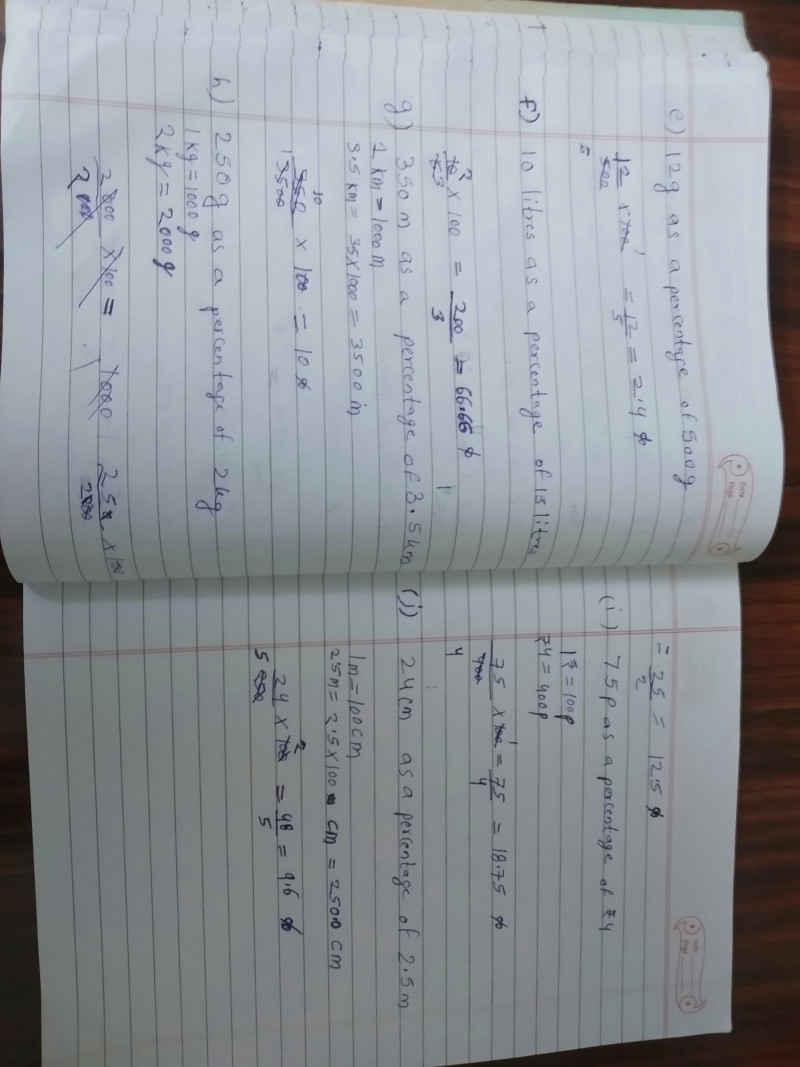 e) 12g as a percentage of 500g
12/500 × 100 1 = 12/5 = 2.4 %
5
f) 10 litres as a percentage of 15 litres
2
10/15 3 × 100 = 200/3 = 66.66 %
g) 350 m as a percentage of 3.5 km
1 km = 1000 m
3.5 km = 35 × 1000 = 3500 m
10
350/3500 × 100 = 10 %
1
h) 250g as a percentage of 2 kg
1 kg = 1000 g
2 kg = 2000 g
2000/2000 × 100 = 1000 250/2000 × 100
= 25/2 = 12.5 %
(i) 75p as a percentage of ₹4
1₹ = 100p
₹4 = 400p
75/400 × 100 1 = 75/4 = 18.75 %
4
(j) 24 cm as a percentage of 2.5 m
1m = 100cm
25m = 2.5 × 100 cm = 2500 cm
24/250 × 100 2 = 48/5 = 9.6 %
5